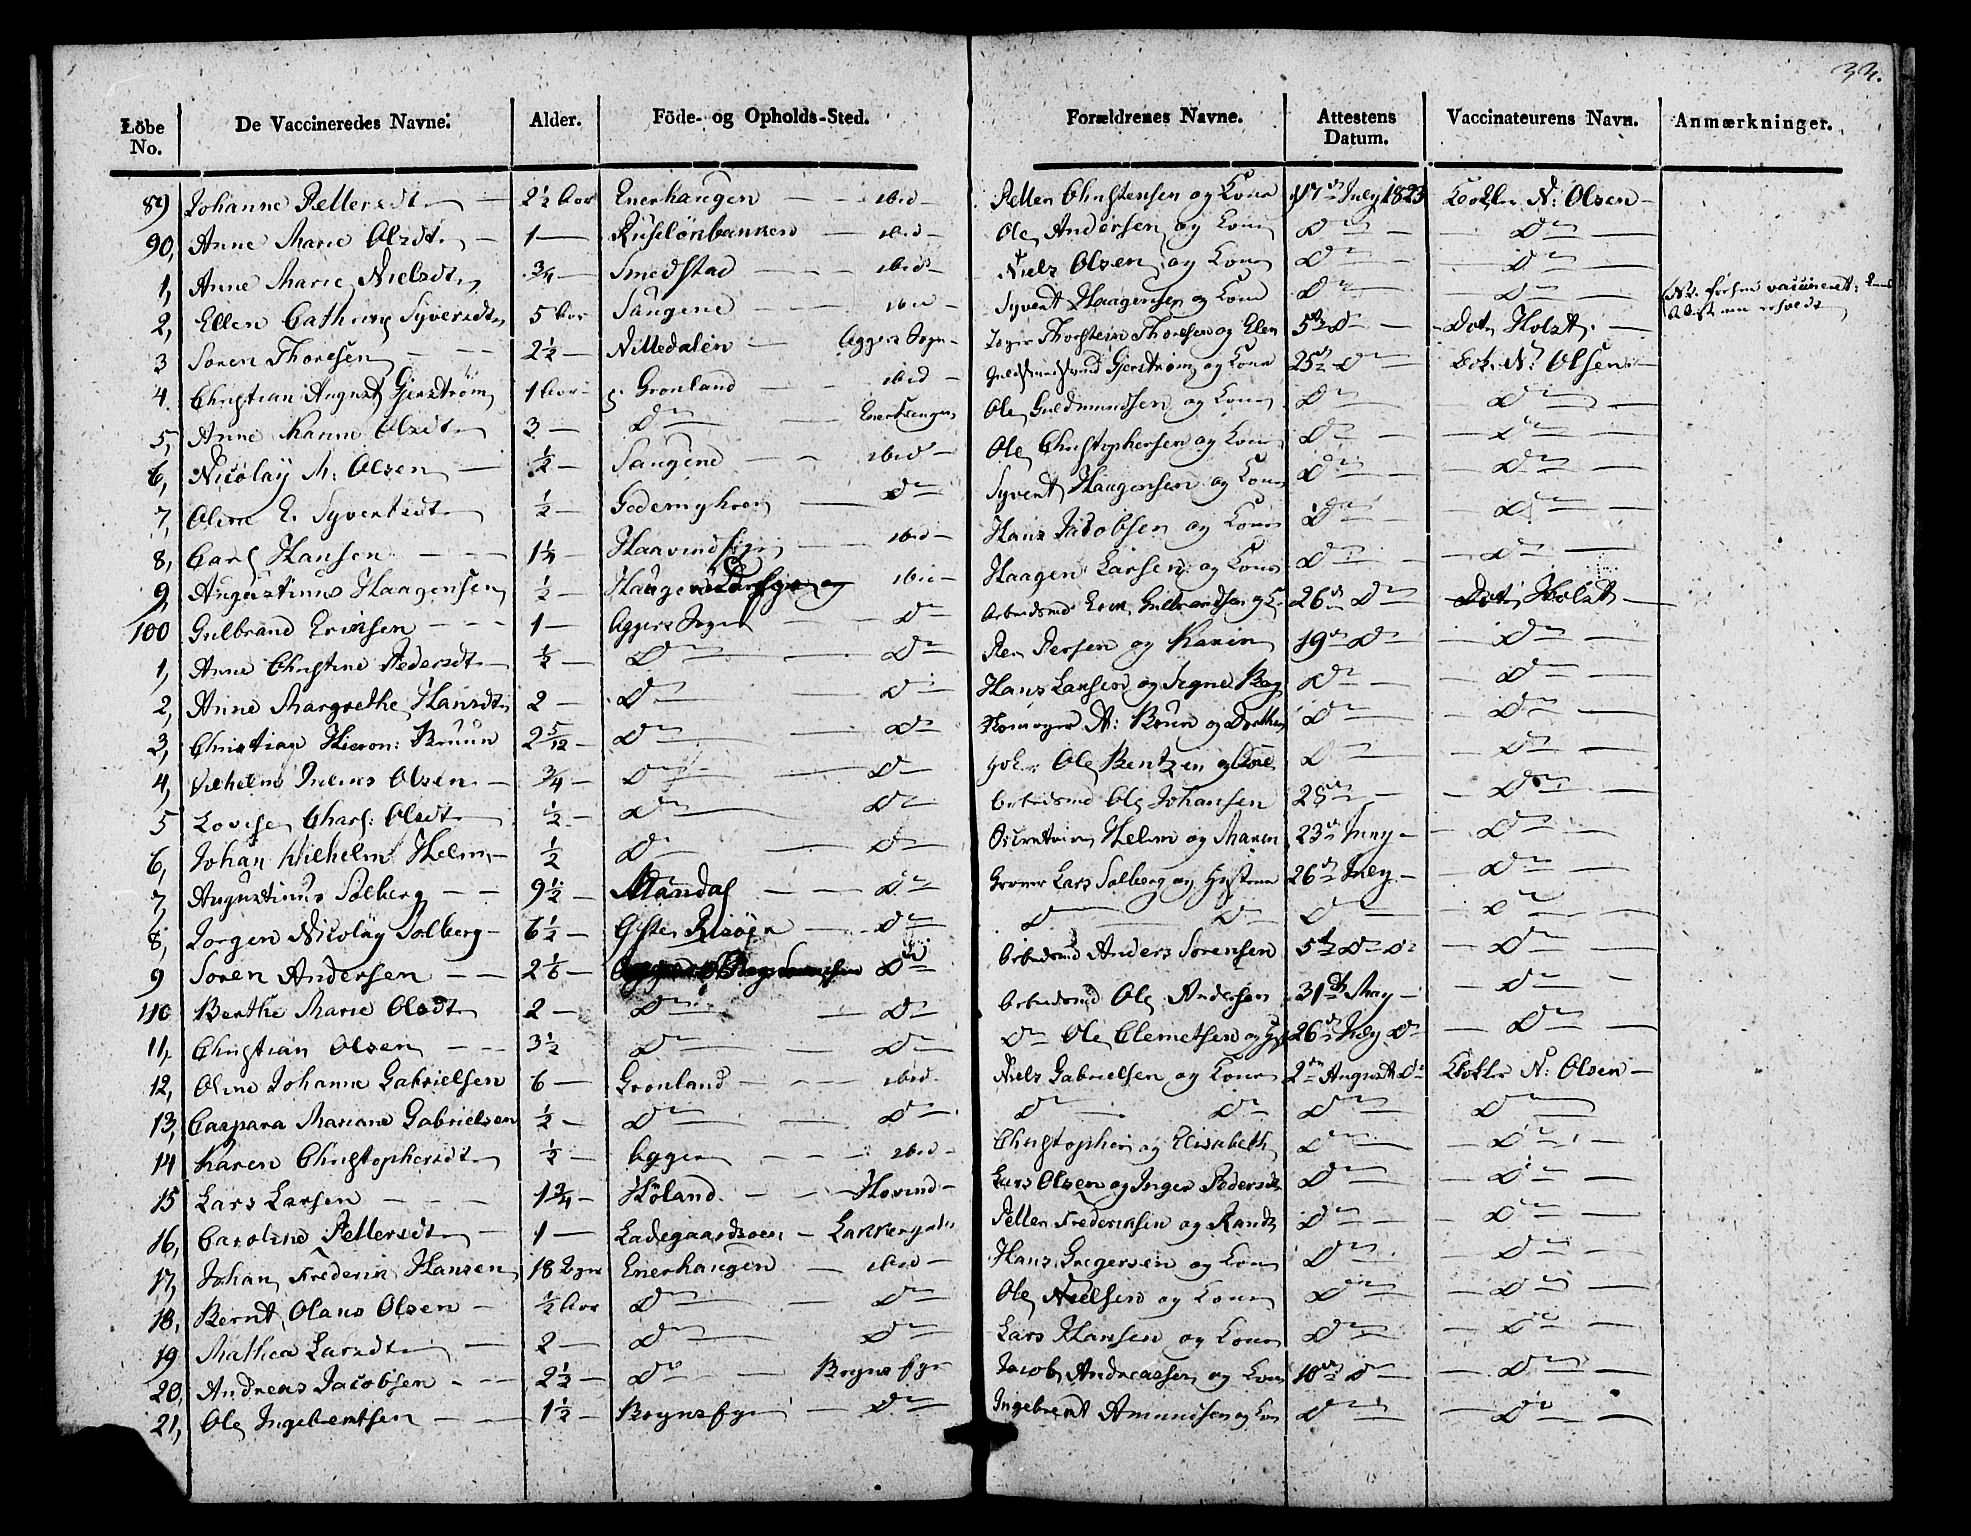 33.
Löbe No. De Vaccineredes Navne. Alder. Föde- og Opholds-Sted. Forældrenes Navne. Attestens Datum. Vaccinateurens Navn. Anmærkninger.
89 Johanne Pettersdt. 2½ Aar Enerhaugen ibid Petter Christensen og Kone 17de July 1823 Klokker N: Olsen
90, Anne Marie Olsdt. 1 ibid Ole Andersen og Kone Do Do
1, Anne Marie Nielsdt. ¾ Smedstad ibid Niels Olsen og Kone Do Do
2, Ellen Cathrine Syversdt. 5 Aar Saugene ibid Syvert Haagensen og Kone Do Do
3 Soren Thoresen 2½ Nittedalen Aggers Sogn Thorstein Thoresen og Elen 5te Do Dotr Holst
4 Christian August Gjerstrøm 1 Aar Gronland ibid Gjerstrøm og Kone 25de Do Klok. N: Olsen
5, Anne Hanne Olsdt. 3 Do Enerhaugen Ole Guldmundsen og Kone Do Do
6, Nicolay M: Olsen ½ Saugene ibid Ole Christophersen og Kone Do Do
7, Oline E. Syvertsdt. ½ Do Syvert Haagensen og Kone Do Do
8, Carl Hansen 1¼ ibid Hans Jacobsen og Kone Do Do
9, Augustinus Haagensen ½ ibid Haagen Larsen og Kone Do Do
100 Gulbrand Eriksen 1 Aggers Sogn Do Arbeidsmd Erik Gulbrandsen og K. 26de Do Dotr Holst
1, Anne Christine Pedersdt. ½ Do Do Peder Persen og Karin 19de Do Do
2, Anne Margrethe Hansdt. 2 Do Do Hans Larsen og Signe Do Do
3, Christian Hieron: Bruun 2 5/12 Do Do A: Bruun og Dorthe Do Do
4, Vilhelm Julius Olsen ¾ Do Do Ole Bentzen og Do Do
5 Lovise Charl: Olsdt. ½ Do Do Arbeidsmd Ole Johansen 25de Do
6, Johan Wilhelm Helm ½ Do Do Helm og Maren 23de Juny Do
7, Augustinus Solberg 9½ Mandal Do Lars Solberg og 26de July Do
8, Jorgen Nicolay Solberg 6½ Risöer Do Do Do Do Do
9 Soren Andersen 2⅙ Do Arbeidsmd Anders Sorensen 5te Do Do Do
110 Berthe Marie Olsdt. 2 Do Do Arbeidsmd Ole Andersen 31te May Do
11, Christian Olsen 3½ Do Do Do Ole Clemetsen og 26de July Do Do
12, Oline Johanne Gabrielsen 6 Gronland ibid Niels Gabrielsen og Kone 2den August Do Klokker N: Olsen
13, Caspara Mariane Gabrielsen ½ Do Do Do Do Do Do
14 Karen Christophersdt. ½ Agger ibid Christopher og Elisabeth Do Do
15 Lars Larsen 1¾ Höland Hovind Lars Olsen og Inger Pedersdt. Do Do
16, Caroline Pettersdt. 1 Ladegaardsöen Petter Frederiksen og Randi Do Do
17, Johan Frederik Hansen 18 Enerhaugen ibid Hans Gregersen og Kone Do Do
18, Bernt Olaus Olsen ½ Aar Do Do Ole Nielsen og Kone Do Do
19 Mathea Larsdt. 2 Do Do Lars Hansen og Kone Do Do
20, Andreas Jacobsen 2½ Do Jacob Andreassen og Kone 10de Do Do
21, Ole Ingebretsen 1½ Do Ingebret Amundsen og Kone Do Do